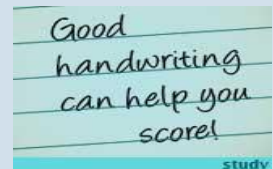 Good
handwriting
can help you
score!
study